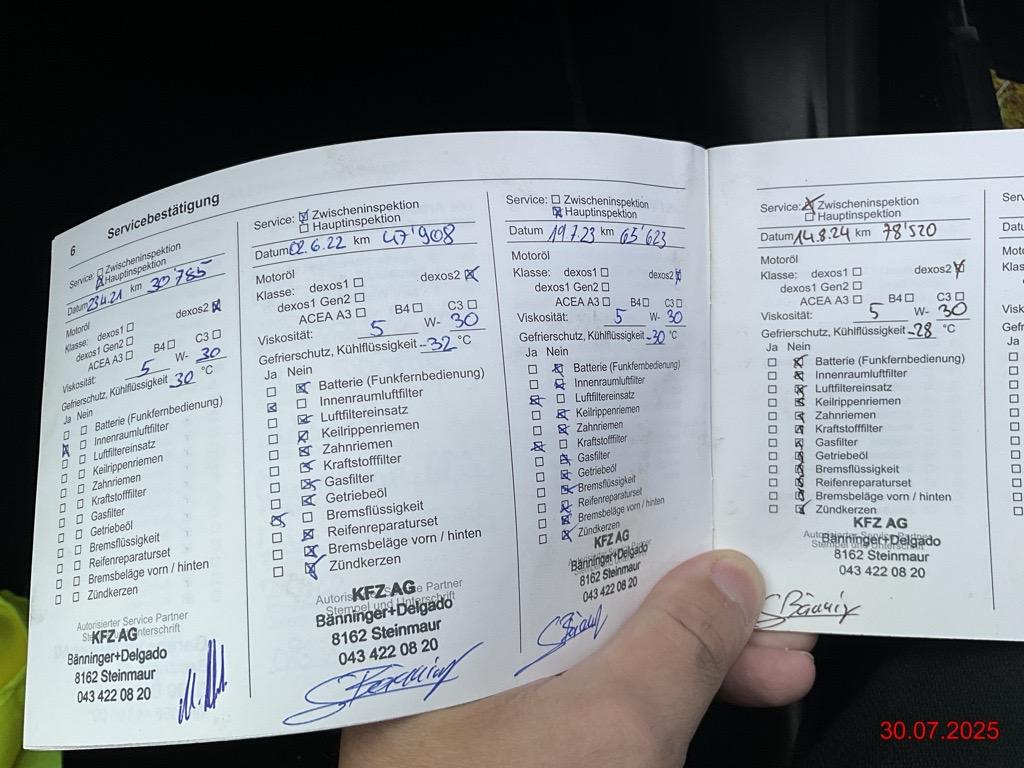 6 Servicebestätigung
Service: Zwischeninspektion
Hauptinspektion
Datum 23.4.21 km 30'785
Motoröl
Klasse: dexos1 dexos2
dexos1 Gen2
ACEA A3 B4 C3
Viskosität: 5 W- 30
Gefrierschutz, Kühlflüssigkeit -30 °C
Ja Nein
Batterie (Funkfernbedienung)
Innenraumluftfilter
Luftfiltereinsatz
Keilrippenriemen
Zahnriemen
Kraftstofffilter
Gasfilter
Getriebeöl
Bremsflüssigkeit
Reifenreparaturset
Bremsbeläge vorn / hinten
Zündkerzen
Autorisierter Service Partner
KFZ AG
Bänninger+Delgado
8162 Steinmaur
043 422 08 20
Service: Zwischeninspektion
Hauptinspektion
Datum 02.6.22 km 47'908
Motoröl
Klasse: dexos1 dexos2
dexos1 Gen2
ACEA A3 B4 C3
Viskosität: 5 W- 30
Gefrierschutz, Kühlflüssigkeit -32 °C
Ja Nein
Batterie (Funkfernbedienung)
Innenraumluftfilter
Luftfiltereinsatz
Keilrippenriemen
Zahnriemen
Kraftstofffilter
Gasfilter
Getriebeöl
Bremsflüssigkeit
Reifenreparaturset
Bremsbeläge vorn / hinten
Zündkerzen
KFZ AG
Autorisierter Service Partner
Stempel und Unterschrift
Bänninger+Delgado
8162 Steinmaur
043 422 08 20
Service: Zwischeninspektion
Hauptinspektion
Datum 19.7.23 km 65'623
Motoröl
Klasse: dexos1 dexos2
dexos1 Gen2
ACEA A3 B4 C3
Viskosität: 5 W- 30
Gefrierschutz, Kühlflüssigkeit -30 °C
Ja Nein
Batterie (Funkfernbedienung)
Innenraumluftfilter
Luftfiltereinsatz
Keilrippenriemen
Zahnriemen
Kraftstofffilter
Gasfilter
Getriebeöl
Bremsflüssigkeit
Reifenreparaturset
Bremsbeläge vorn / hinten
Zündkerzen
KFZ AG
Bänninger+Delgado
8162 Steinmaur
043 422 08 20
Service: Zwischeninspektion
Hauptinspektion
Datum 14.8.24 km 78'520
Motoröl
Klasse: dexos1 dexos2
dexos1 Gen2
ACEA A3 B4 C3
Viskosität: 5 W- 30
Gefrierschutz, Kühlflüssigkeit -28 °C
Ja Nein
Batterie (Funkfernbedienung)
Innenraumluftfilter
Luftfiltereinsatz
Keilrippenriemen
Zahnriemen
Kraftstofffilter
Gasfilter
Getriebeöl
Bremsflüssigkeit
Reifenreparaturset
Bremsbeläge vorn / hinten
Zündkerzen
KFZ AG
Bänninger+Delgado
8162 Steinmaur
043 422 08 20
30.07.2025